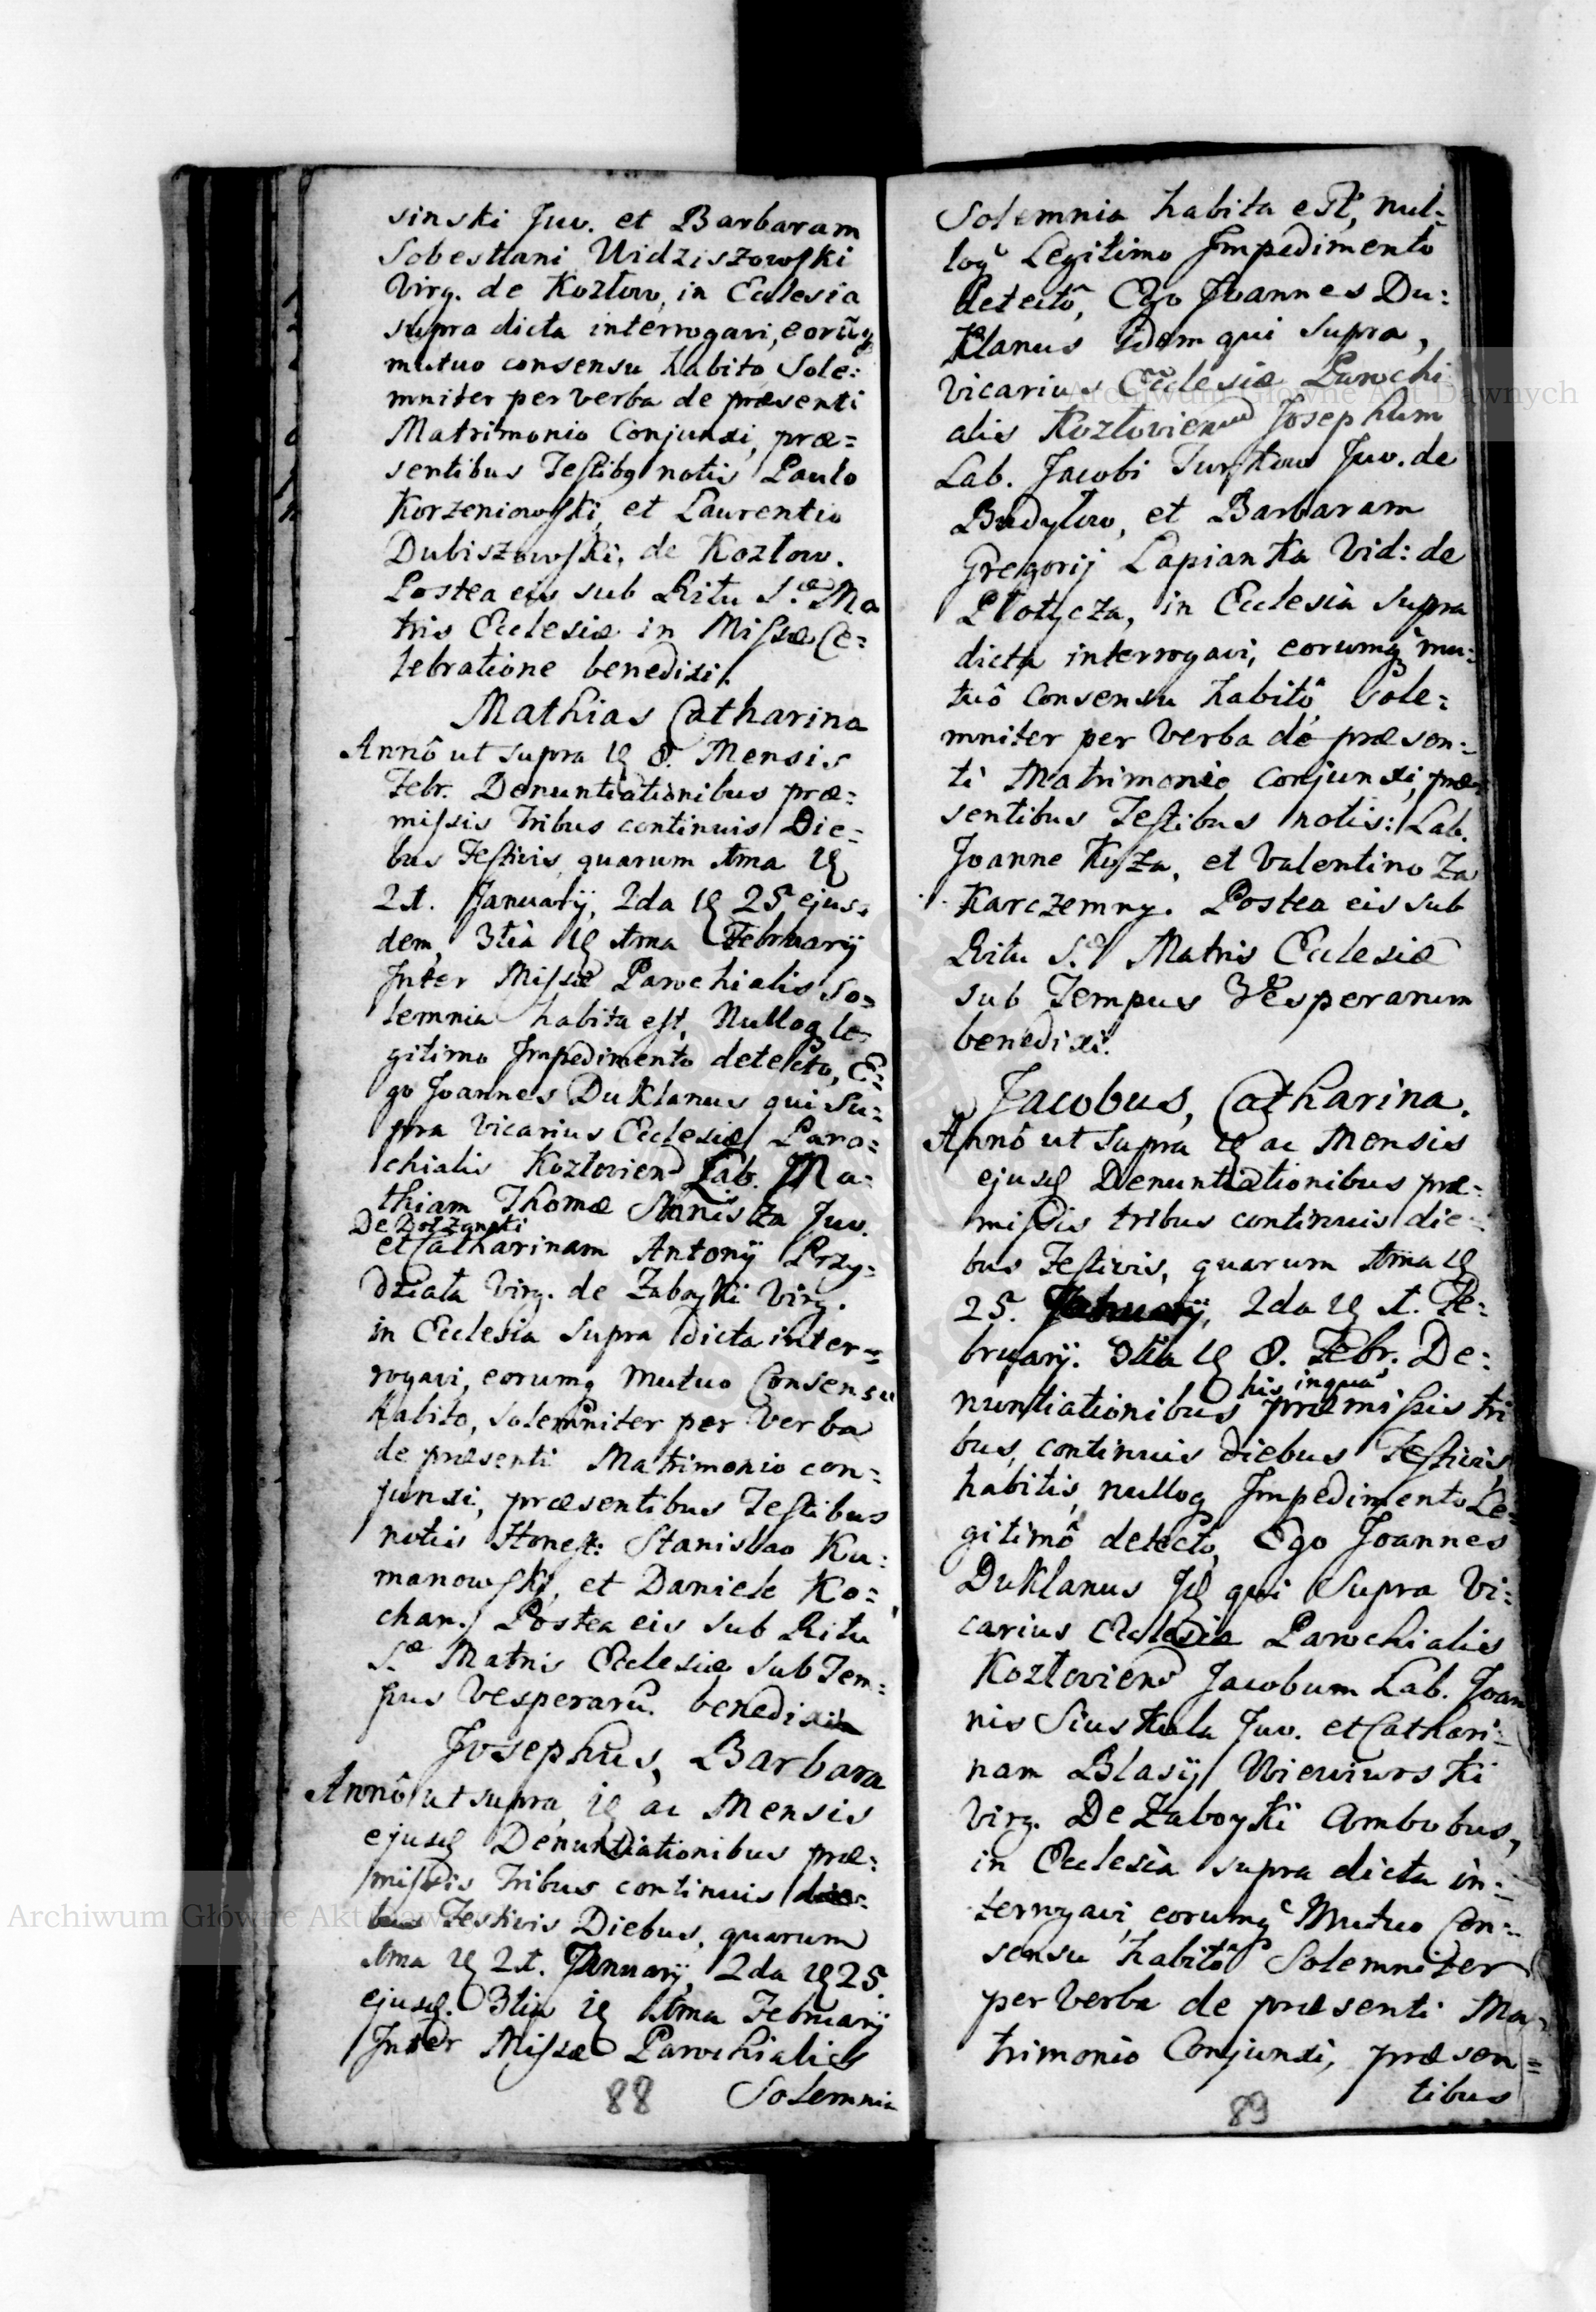 sinski Juv. et Barbaram
Sobestiani Widziszowski
Virg. de Kozłow, in Ecclesia
supra dicta interrogavi, eorūq
mutuo consensu habito Sole=
mniter per verba de præsenti
Matrimonio Conjunxi, præ=
sentibus Testibq notis Paulo
Korzeniowski, et Laurentio
Dubiszowski, de Kozłow.
Postea eis sub Ritu S.æ Ma
tris Ecclesiæ in Missæ Ce=
lebratione benedixi.
Mathias Catharina
Annô ut supra id 8. Mensis
Febr. Denuntiationibus præ=
missis Tribus continuis Die=
bus Festivis, quarum 1ma id
21. Januarÿ, 2da id 25 ejus=
dem, 3tia id 1ma Februarÿ
Inter Missæ Parochialis So=
lemnia habita est, Nulloq le=
gitimo Impedimento detecto, E=
go Joannes Duklanus qui Su=
pra Vicarius Ecclesiæ Paro=
chialis Kozłovien Lab. Ma=
thiam Thomæ Stanisza Juv.
De Dołzanki
et Catharinam Antonÿ Przy=
działa Virg. de Zaboyki Virg.
in Ecclesia Supra dicta inter=
rogavi, eorumq mutuo Consensu
habito, solemniter per Verba
de præsenti Matrimonio con=
junxi, præsentibus Testibus
notis Honest: Stanislao Ku=
manowski, et Daniele Ko=
chan. Postea eis sub Ritu
S.æ Matris Ecclesiæ sub Tem=
pus Vesperarū benedixi
Josephus, Barbara
Annô ut supra, id ac Mensis
ejusd Denuntiationibus præ=
missis Tribus continuis die=
bus Festivis Diebus, quarum
1ma id 21. Januarÿ, 2da id 25.
ejusd. 3tia id 1ma Februarÿ
Inter Missæ Parochialis
88 Solemnia
Solemnia habita est, nul=
loq Legitimo Impedimento
detectô, Ego Joannes Du=
klanus Idem qui Supra,
Vicarius Ecclesiæ Parochi
alis Kozłovien Josephum
Lab. Jacobi Turkow Juv. de
Budyłow, et Barbaram
Gregorij Lapianka Vid: de
Płotycza, in Ecclesia supra
dicta interrogavi, eorumq mu=
tuô Consensu habitô, Sole=
mniter per Verba de præsen=
ti Matrimonio conjunxi, præ=
sentibus Testibus notis: Lab.
Joanne Koza, et Valentino Za
Karczemny. Postea eis sub
Ritu S.æ Matris Ecclesiæ
sub Tempus Vesperarum
benedixi.
Jacobus, Catharina.
Annô ut supra id ac Mensis
ejusd Denuntiationibus præ=
missis tribus continuis die=
bus Festivis, quarum 1ma id
25. Januarÿ, 2da id 1. Fe=
bruarÿ. 3tia id 8. Febr. De=
his inqua
nuntiationibus præmissis tri
bus, continuis diebus Festivis,
habitis, nulloq Impedimento Le=
gitimô detecto, Ego Joannes
Duklanus Id qui Supra Vi=
carius Ecclesiæ Parochialis
Kozłovien Jacobum Lab. Joan
nis Siuskula Juv. et Cathari=
nam Blasÿ Wiewiurski
Virg. De Zaboyki Ambobus,
in Ecclesia supra dicta in=
terrogavi, eorumq Mutuo Con=
sensu habitô Solemniter
per Verba de præsenti Ma=
trimonio Conjunxi, præsen=
tibus
89
Archiwum Główne Akt Dawnych
Archiwum Główne Akt Dawnych